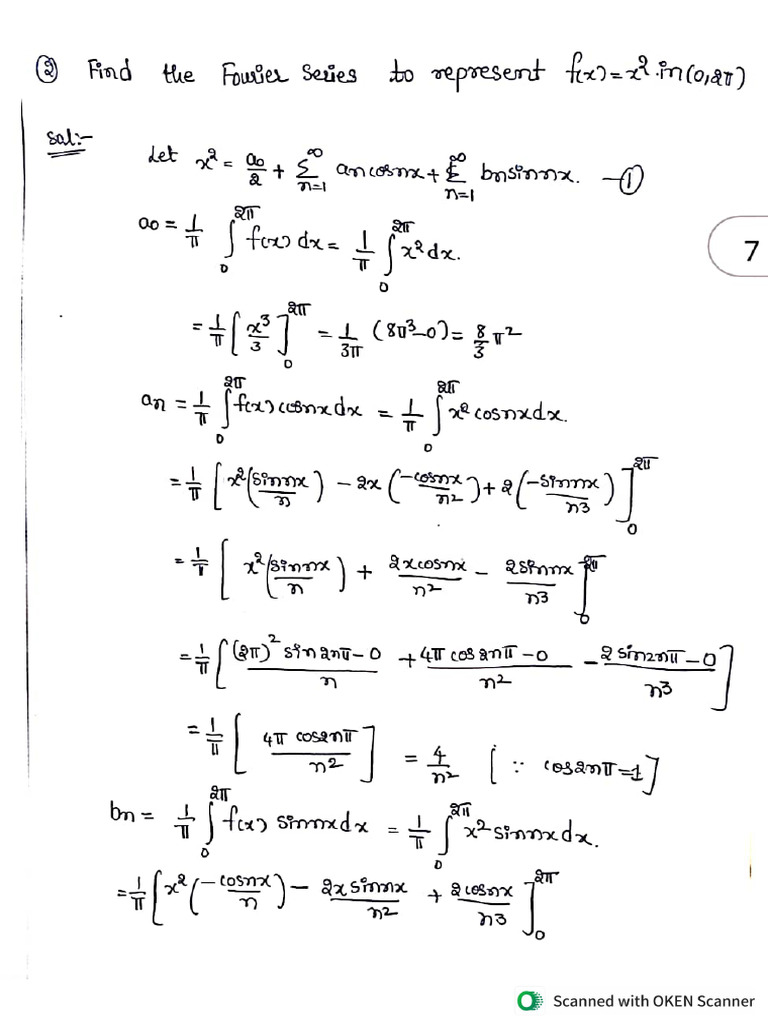 ② Find the Fourier Series to represent f(x)=x².in(0,2π)
Sol:-
Let x² = a₀/2 + Σ_{n=1}^{∞} an cosnx + Σ_{n=1}^{∞} bn sinnx. —①
a₀ = 1/π ∫₀^{2π} f(x) dx = 1/π ∫₀^{2π} x² dx.
7
= 1/π [x³/3]₀^{2π} = 1/3π (8π³-0) = 8/3 π²
an = 1/π ∫₀^{2π} f(x) cosnx dx = 1/π ∫₀^{2π} x² cosnx dx.
= 1/π [x²(sinnx/n) - 2x(-cosnx/n²) + 2(-sinnx/n³)]₀^{2π}
= 1/π [x²(sinnx/n) + 2xcosnx/n² - 2sinnx/n³]₀^{2π}
= 1/π [(2π)² sin2nπ-0/n + 4π cos2nπ-0/n² - 2sin2nπ-0/n³]
= 1/π [4π cos2nπ/n²] = 4/n² [∵ cos2nπ=1]
bn = 1/π ∫₀^{2π} f(x) sinnx dx = 1/π ∫₀^{2π} x² sinnx dx.
= 1/π [x²(-cosnx/n) - 2x sinnx/n² + 2cosnx/n³]₀^{2π}
Scanned with OKEN Scanner